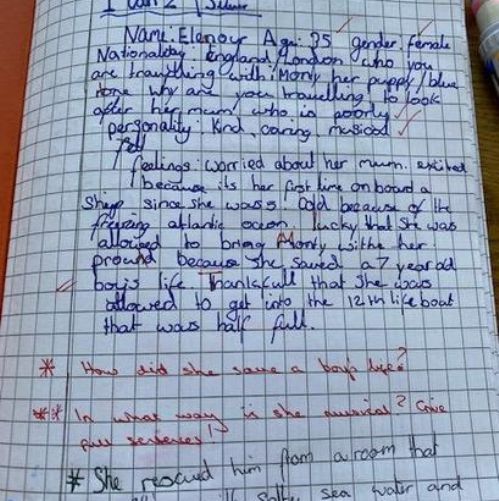 I can 2
Name: Elenour Age: 35 gender: female
Nationalaty: England/London who you
are traveling with: Monty her puppy/blue
Why are you travelling to look
after her mum who is poorly
personality: Kind, caring, musical
feelings: worried about her mum. excited
because its her first time on board a
Ship since she was 5. Cold because of the
freezing atlantic ocean. lucky that She was
allowed to bring Monty withe her
pround because She saved a 7 year old
boys life. Thankfull that She was
allowed to get into the 12th lifeboat
that was half full.
* How did she save a boy's life?
** In what way is she musical? Give
full sentences!
* She rescued him from a room that
salty sea water and